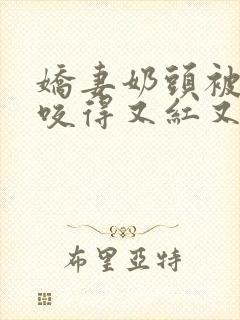 嬌妻奶頭被
咬得又紅又
布里亞特